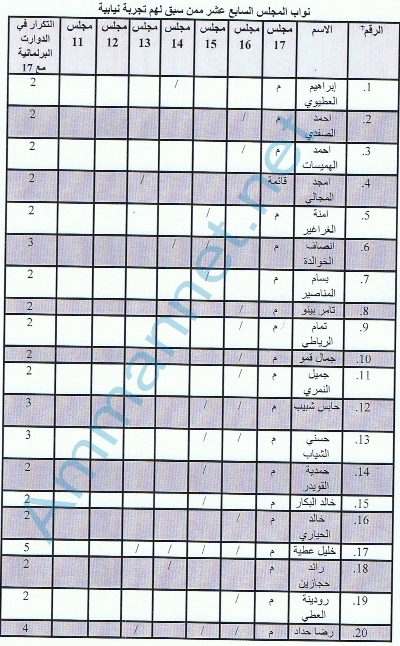 نواب المجلس السابع عشر ممن سبق لهم تجربة نيابية
الرقم الاسم مجلس 17 مجلس 16 مجلس 15 مجلس 14 مجلس 13 مجلس 12 مجلس 11 التكرار في الدوارت البرلمانية مع 17
1. إبراهيم العطيوي م / 2
2. احمد الصفدي م / 2
3. احمد الهميسات م / 2
4. امجد المجالي قائمة / 2
5. امنة الغراغير م / 2
6. انصاف الخوالدة م / / 3
7. بسام المناصير م / 2
8. تامر بينو م / 2
9. تمام الرياطي م / 2
10. جمال قمو م / 2
11. جميل النمري م / 2
12. حابس شبيب م / / 3
13. حسني الشياب م / / 3
14. حمدية القويدر م / 2
15. خالد البكار م / 2
16. خالد الحياري م / 2
17. خليل عطية م / / / / 5
18. رائد حجازين م / 2
19. رودينة العطي م / 2
20. رضا حداد م / / / 4
Ammannet.net